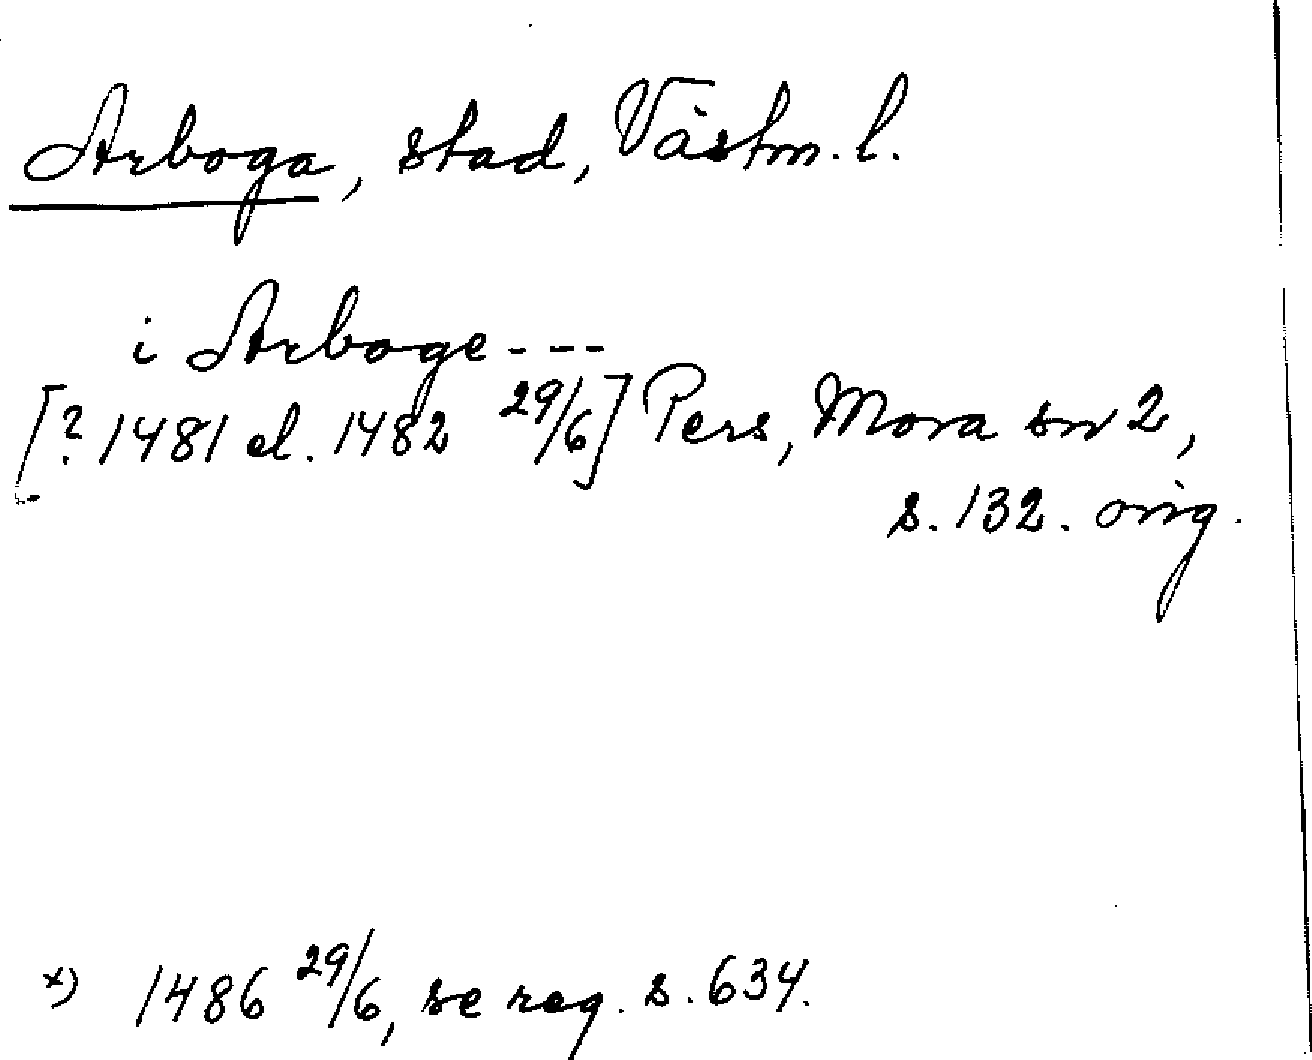 Arboga, stad, Västm. l.
i Arboge - - -
[? 1481 el. 1482 29/6] Pers, Mora sn 2,
s. 132. orig.
x) 1486 29/6, se reg. s. 634.